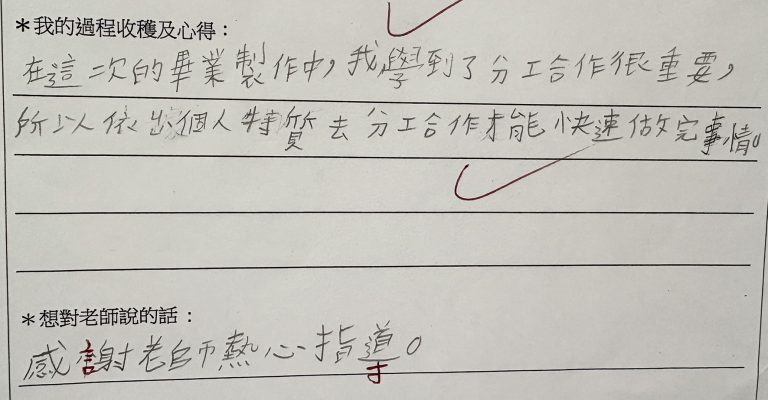 ＊我的過程收穫及心得：
在這二次的畢業製作中，我學到了分工合作很重要，
所以依個人特質去分工合作才能快速做完事情。
＊想對老師說的話：
感謝老師熱心指導。